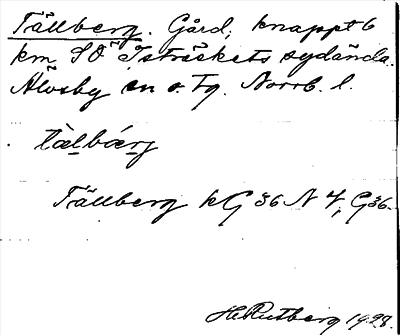 Tällberg. Gård, knappt 6
km SO Isträskets sydända.
Älvsby sn o. Tg. Norrb. l.
tàlbárj
Tällberg kG 36 N 4, G36.
H. Rutberg 1928.